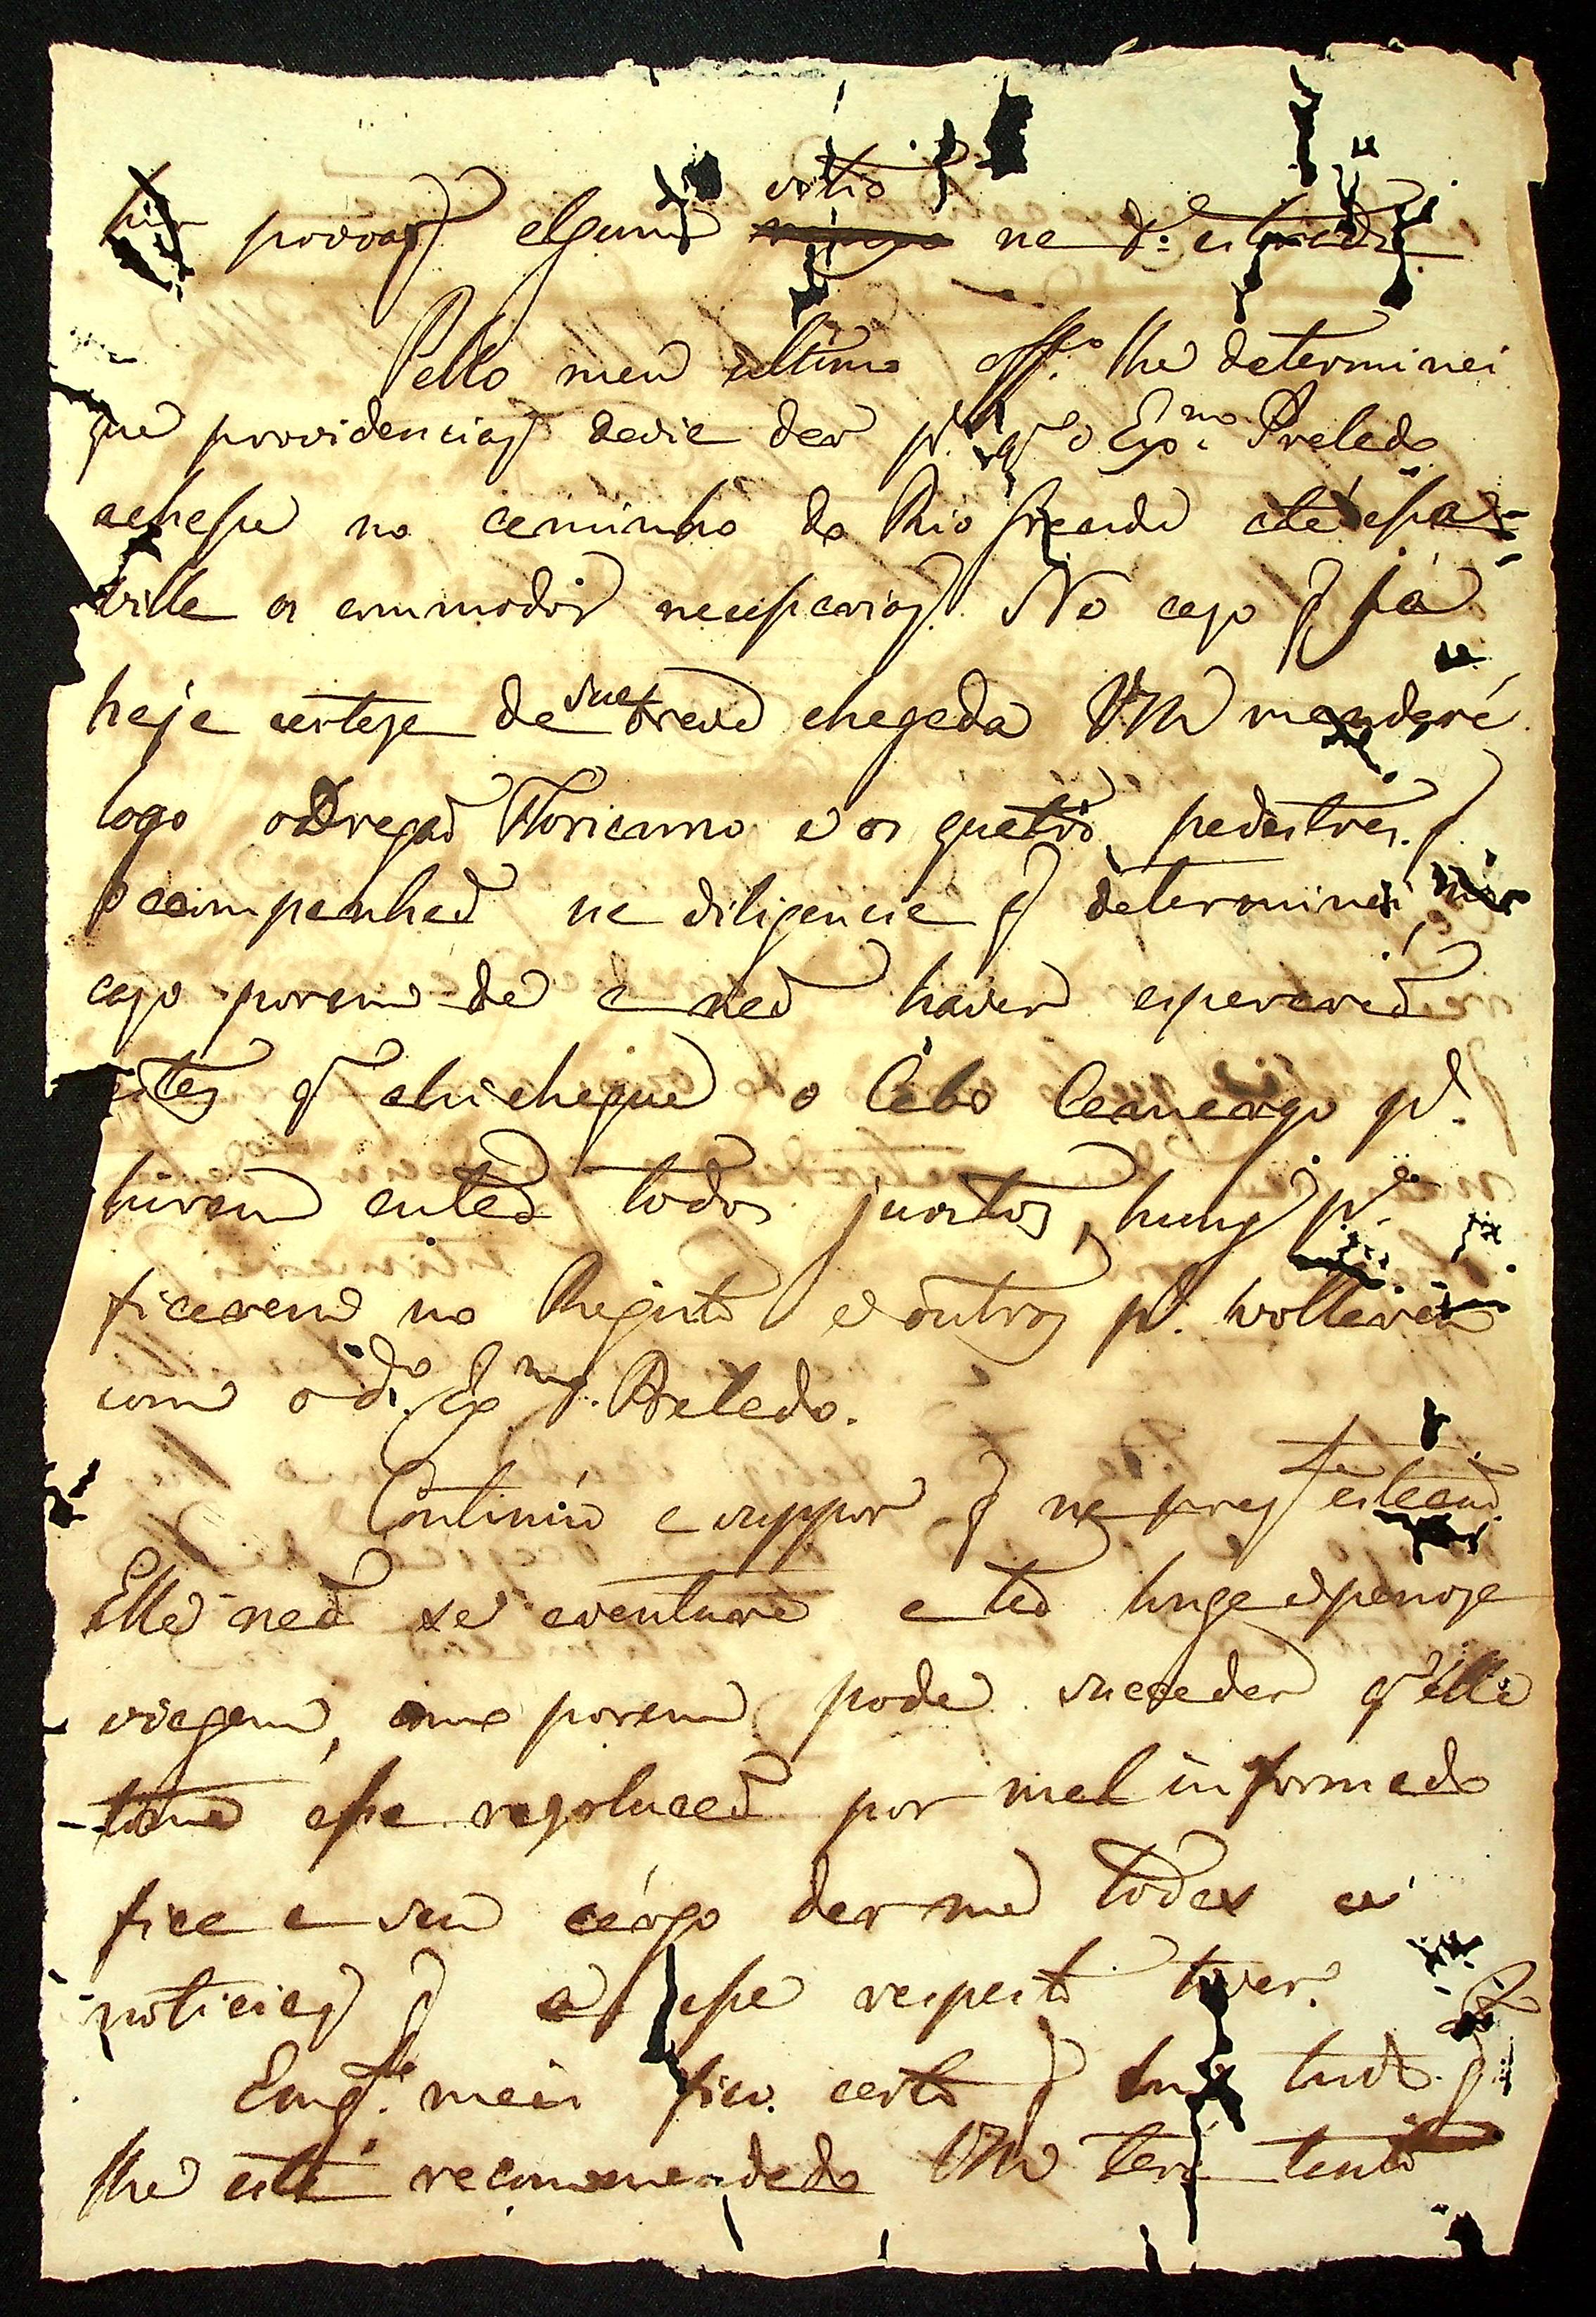 hir povoaş algum sitio na d.ª estrada
Pello meu ultimo off.º lhe determinei
que providencias devia dar p.ª q̃ o Ex.mo Prelado
achasse no caminho do Rio Grande até essa
villa os commodos necessarios. No cazo q̃ já
haja certeza de sua breve chegada VM mandará
logo o Dragaõ Floriano e os quatro pedestres q̃
o acompanhaõ na diligencia q̃ determinei
cazo porem de a naõ haver esperaraõ
estes q̃ ahi chegue o Cabo Camargo p.ª
hirem entaõ todos juntos, huns p.ª
ficarem no Registo e outros p.ª voltarem
com o d.º Ex.mo Prelado.
Continúo a suppor q̃ na prez.te estaçaõ
Elle naõ se aventure a taõ longa e penoza
viagem, como porem pode succeder q̃ elle
tome essa rezoluçaõ por mal informado
fica a seu cargo dar me todas as
noticias q̃ a esse respeito tiver.
Emq.to mais fico certo q̃ em tudo q̃
lhe está recommendado VM terá tanto